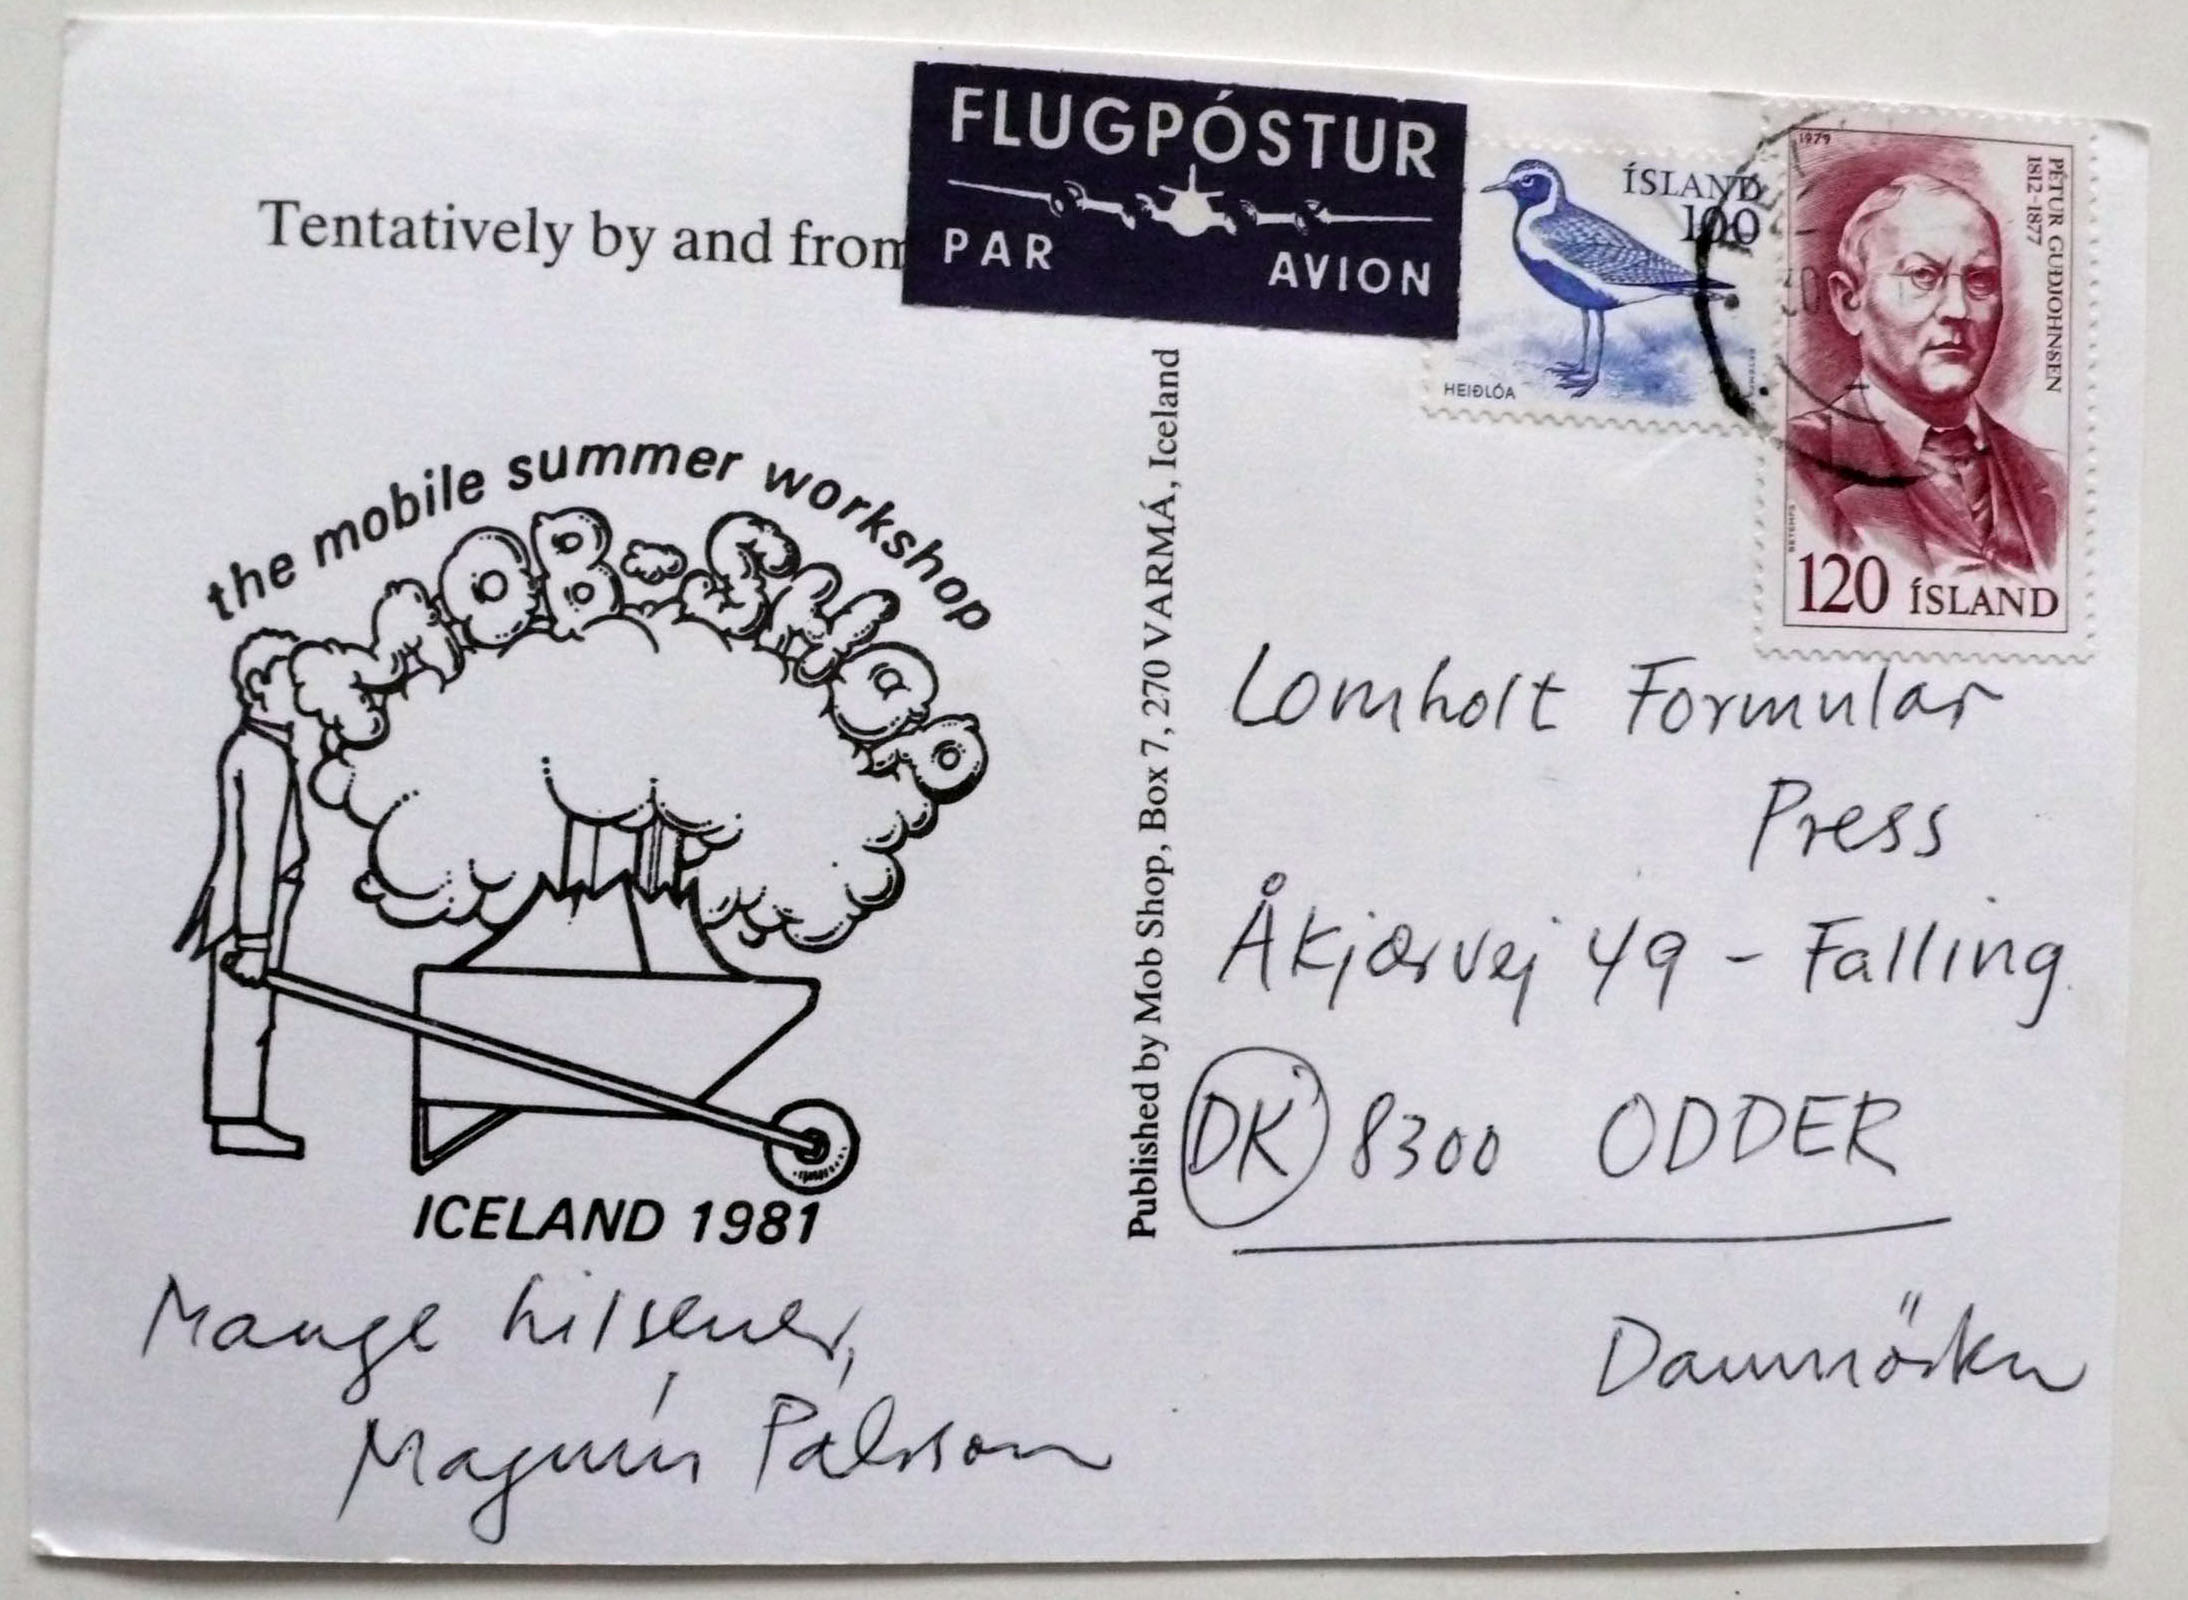 Tentatively by and from
FLUGPÓSTUR
PAR AVION
ÍSLAND
100
HEIÐLÓA
1979
PÉTUR GUÐJOHNSEN
1812-1877
120 ÍSLAND
the mobile summer workshop
MOB SHOP
ICELAND 1981
Mange hilsener,
Magnús Pálsson
Published by Mob Shop, Box 7, 270 VARMÁ, Iceland
Lomholt Formular
Press
Åkjærvej 49 - Falling
DK 8300 ODDER
Danmörku